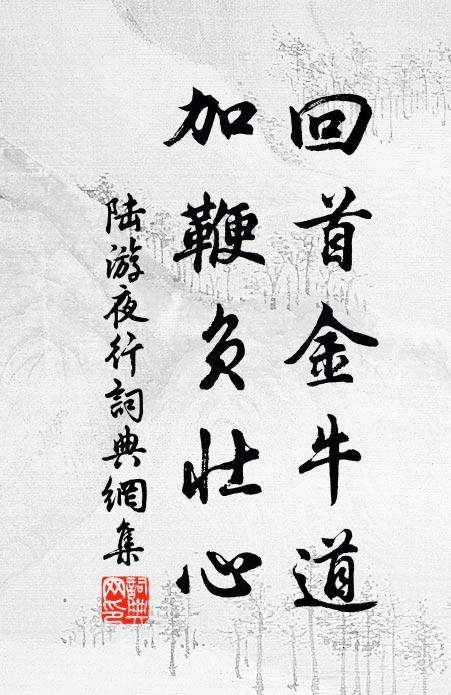 回首金牛道
加鞭负壮心
陆游夜行詞典網集